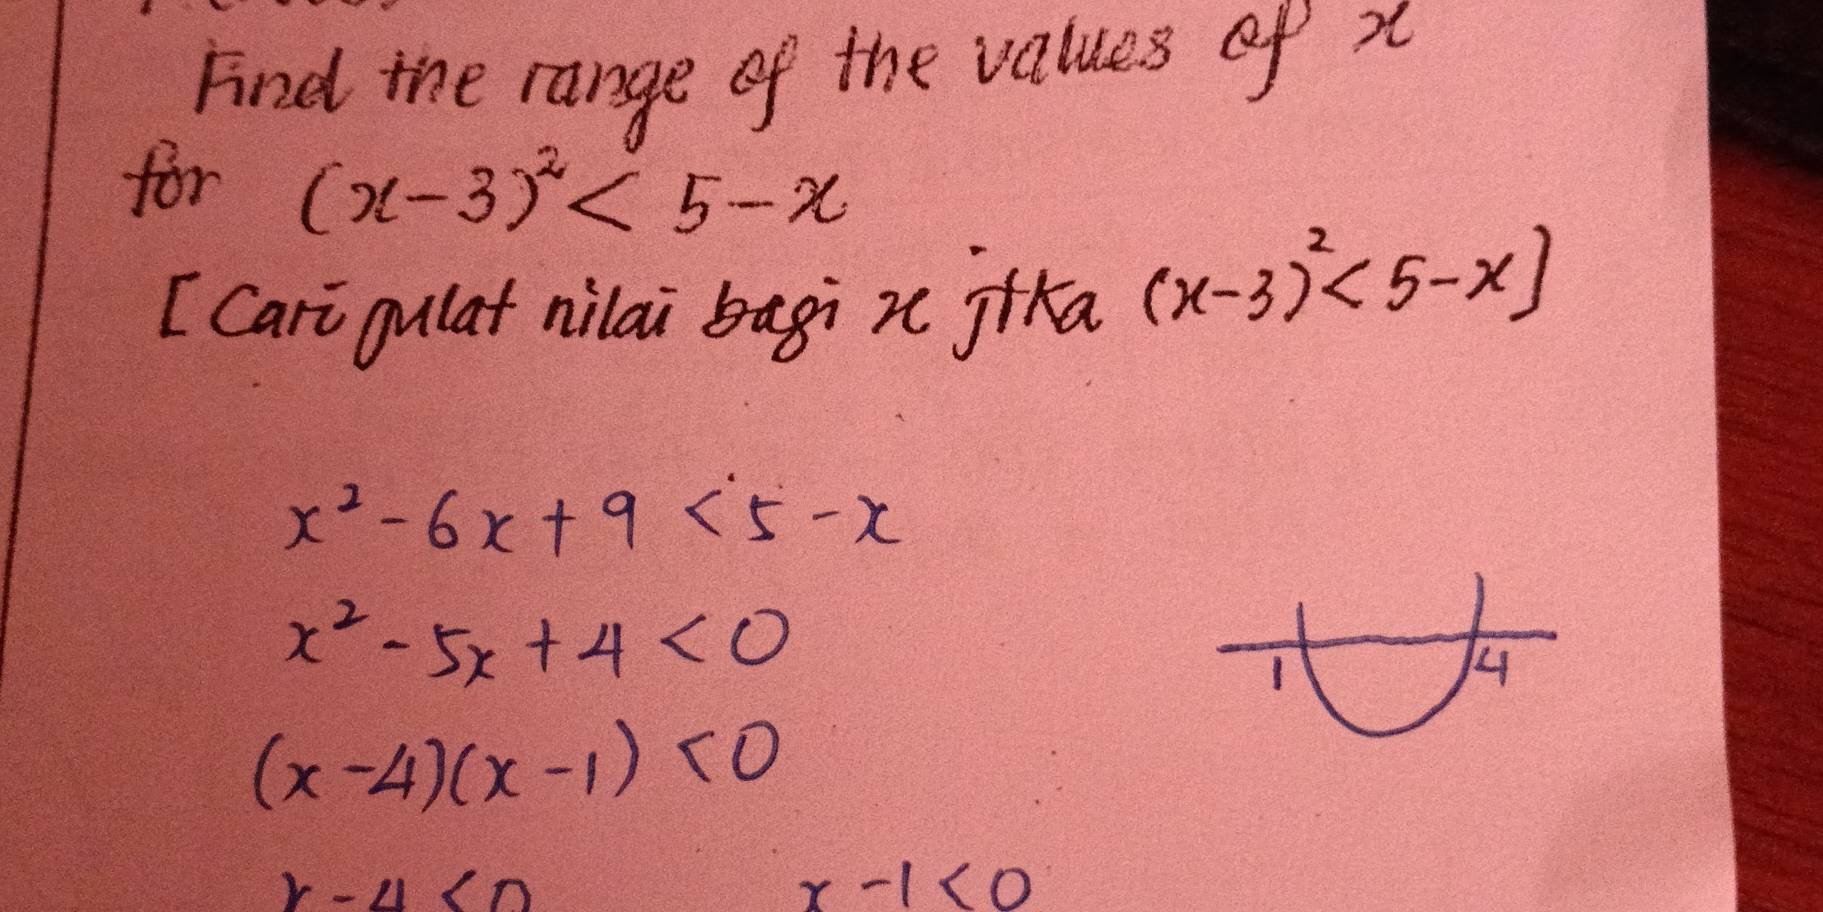 Find the range of the values of x
for (x-3)² < 5-x
[Cari julat nilai bagi x jika (x-3)² < 5-x]
x² - 6x + 9 < 5 - x
x² - 5x + 4 < 0
1 4
(x-4)(x-1) < 0
x - 4 < 0 x - 1 < 0